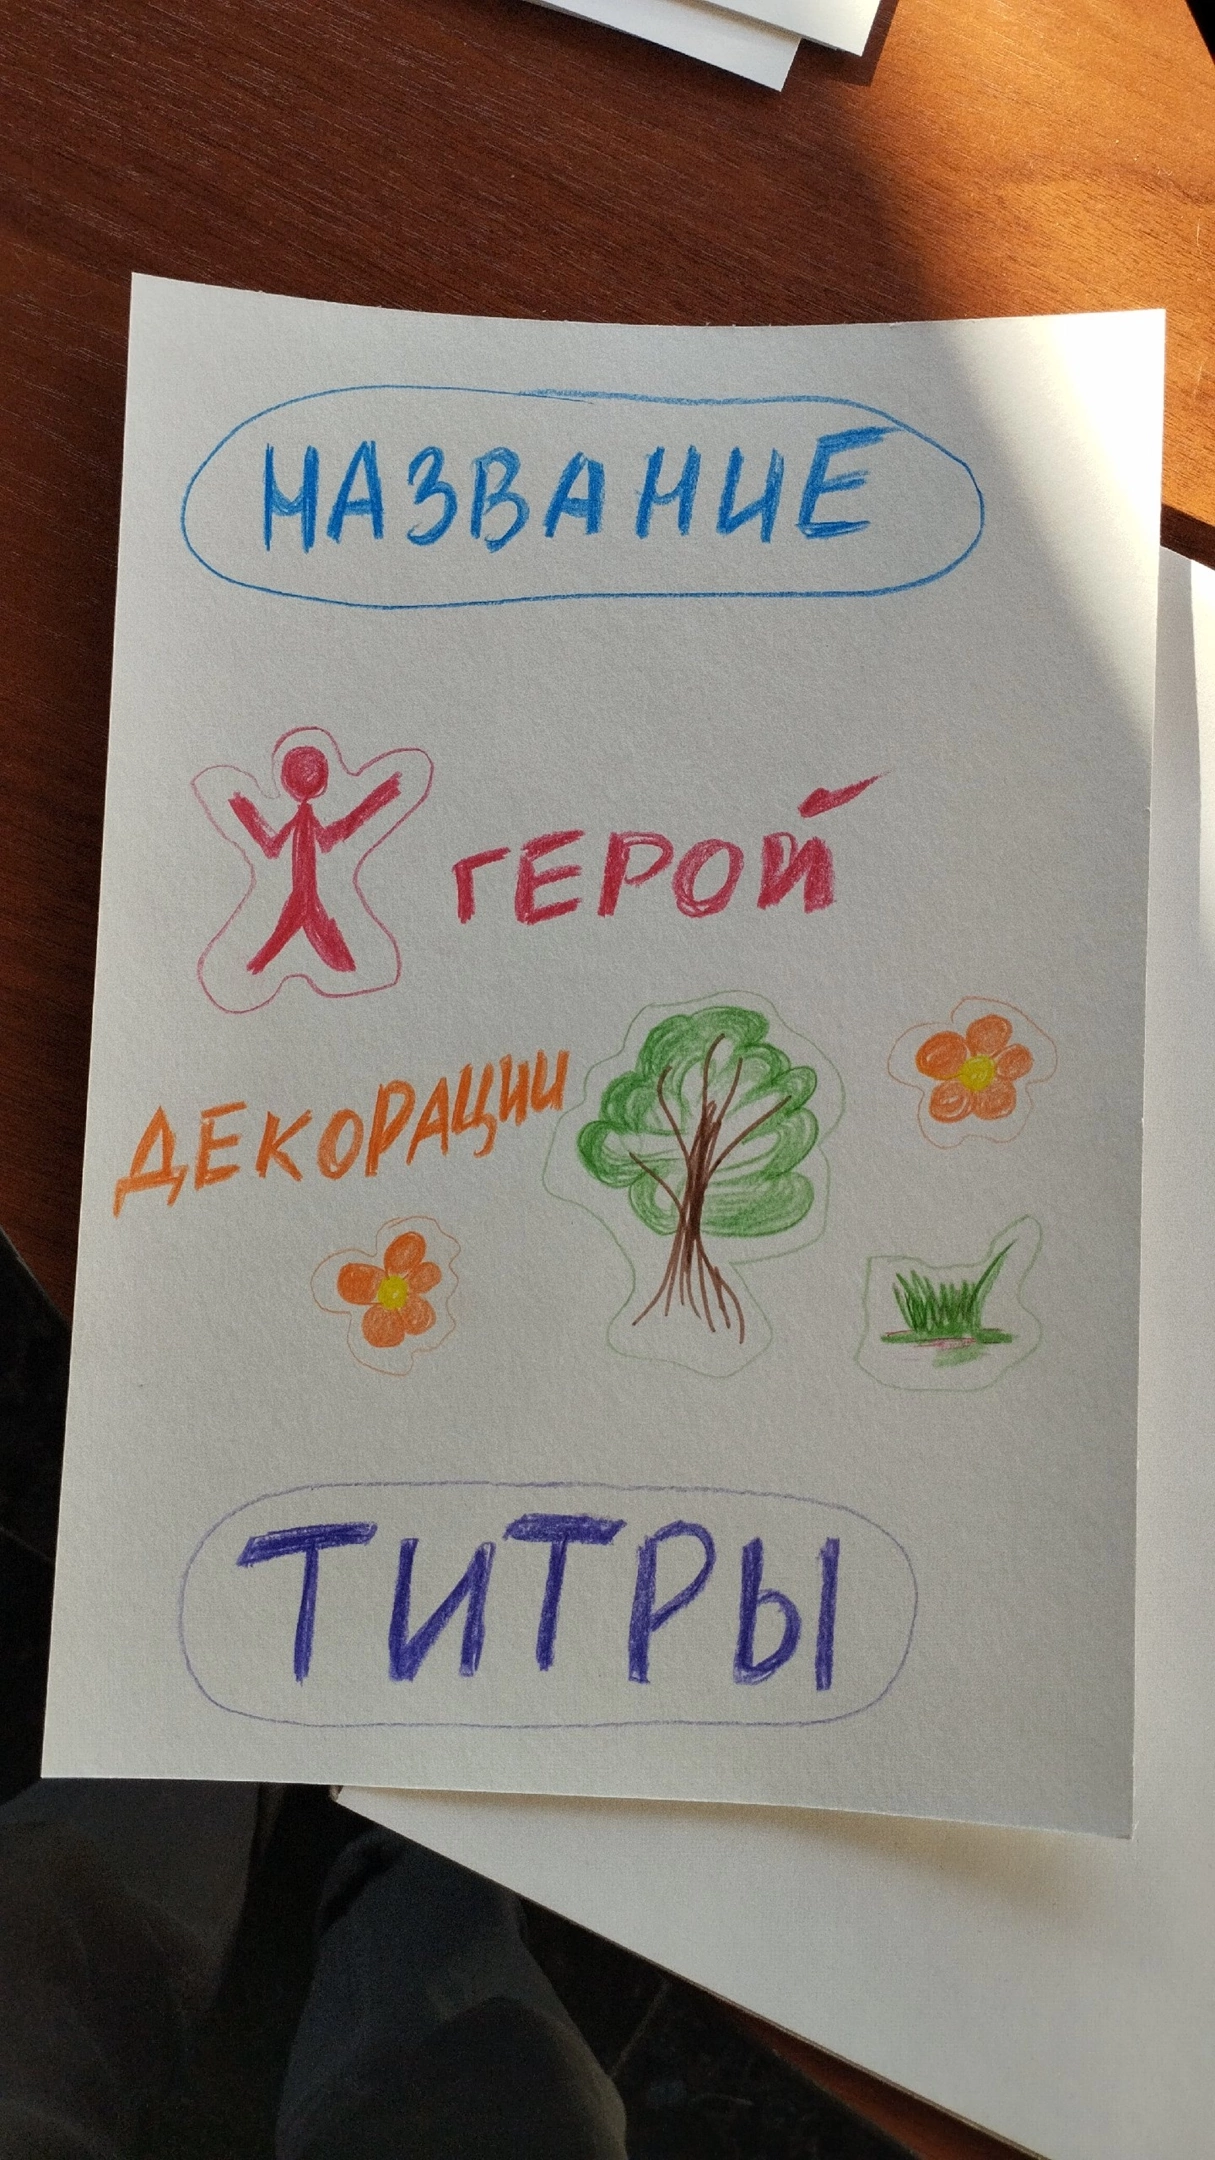 НАЗВАНИЕ
ГЕРОЙ
ДЕКОРАЦИИ
ТИТРЫ